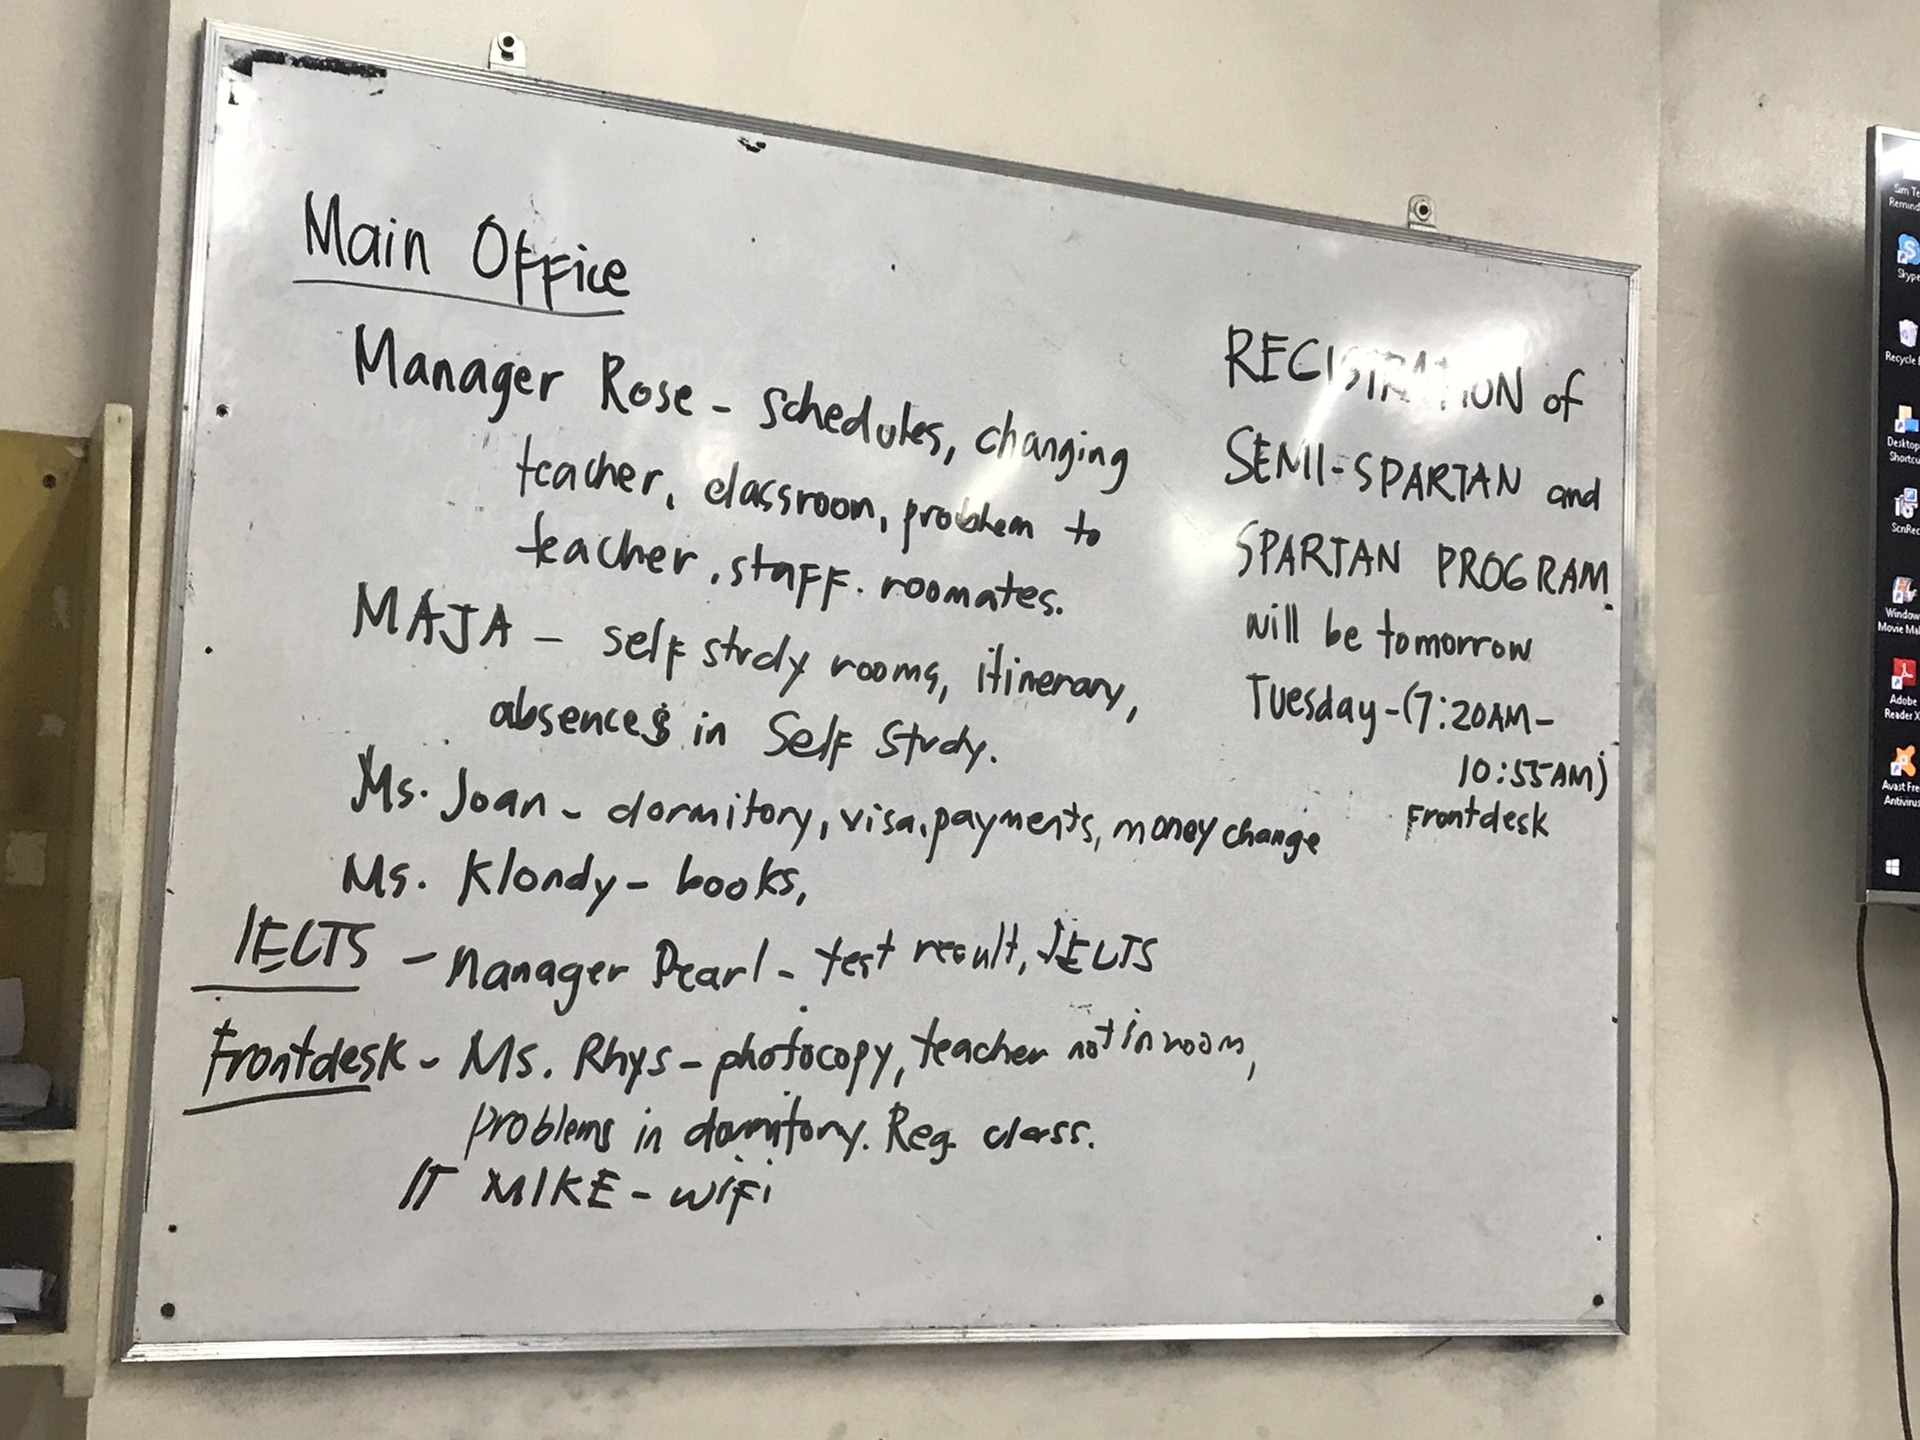 Main Office
Manager Rose - schedules, changing
teacher, classroom, problem to
teacher, staff. roomates.
MAJA - self study rooms, itinerary,
absences in Self Study.
Ms. Joan - dormitory, visa, payments, money change
Ms. Klondy - books,
IELTS - Manager Pearl - test result, IELTS
Frontdesk - Ms. Rhys - photocopy, teacher not in room,
problems in dormitory. Reg. class.
IT MIKE - wifi
REGISTRATION of
SEMI-SPARTAN and
SPARTAN PROGRAM.
will be tomorrow
Tuesday - (7:20AM -
10:55AM)
Frontdesk
Skype
Recycle
Desktop
Shortcu
ScnRec
Window
Movie Ma
Adobe
Reader X
Avast Fre
Antivirus